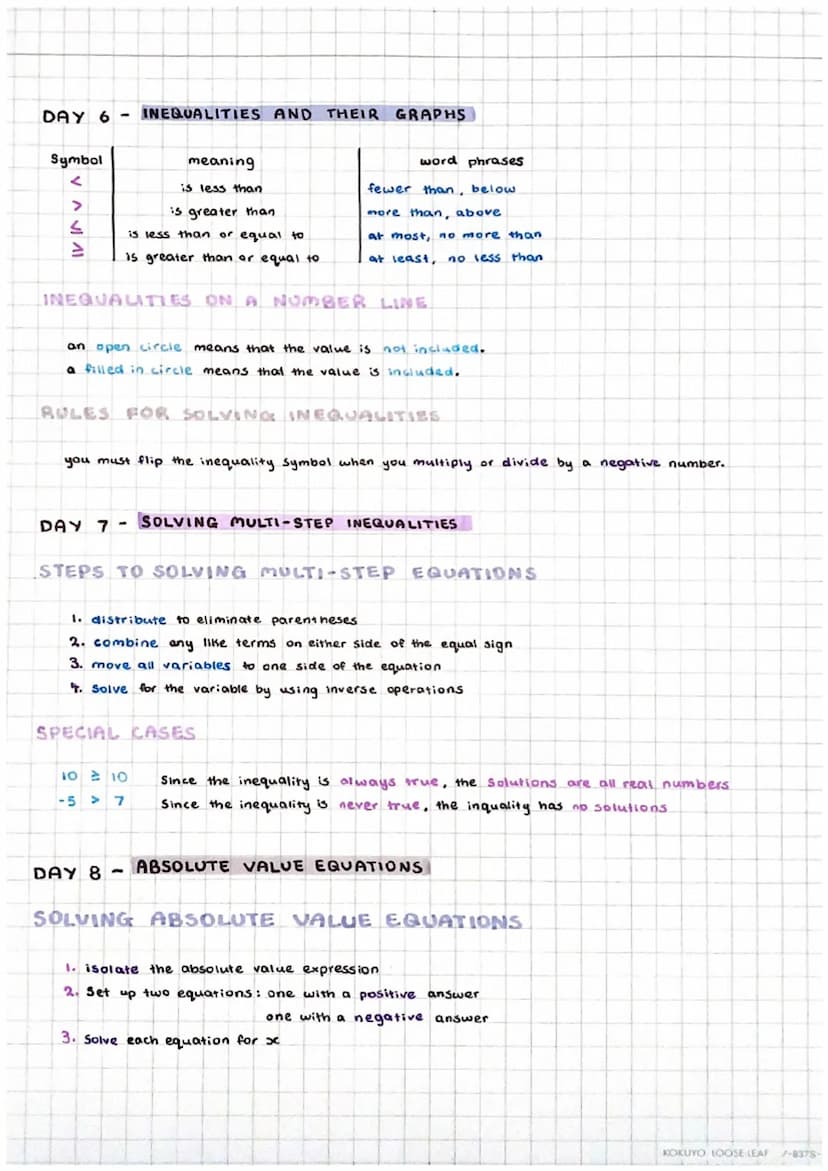 DAY 6 - INEQUALITIES AND THEIR GRAPHS
Symbol meaning word phrases
< is less than fewer than, below
> is greater than more than, above
≤ is less than or equal to at most, no more than
≥ is greater than or equal to at least, no less than
INEQUALITIES ON A NUMBER LINE
an open circle means that the value is not included.
a filled in circle means that the value is included.
RULES FOR SOLVING INEQUALITIES
you must flip the inequality symbol when you multiply or divide by a negative number.
DAY 7 - SOLVING MULTI-STEP INEQUALITIES
STEPS TO SOLVING MULTI-STEP EQUATIONS
1. distribute to eliminate parentheses
2. combine any like terms on either side of the equal sign
3. move all variables to one side of the equation
4. Solve for the variable by using inverse operations
SPECIAL CASES
10 ≥ 10 Since the inequality is always true, the solutions are all real numbers
-5 > 7 Since the inequality is never true, the inquality has no solutions
DAY 8 - ABSOLUTE VALUE EQUATIONS
SOLVING ABSOLUTE VALUE EQUATIONS
1. isolate the absolute value expression
2. Set up two equations: one with a positive answer
one with a negative answer
3. Solve each equation for x
KOKUYO LOOSE-LEAF